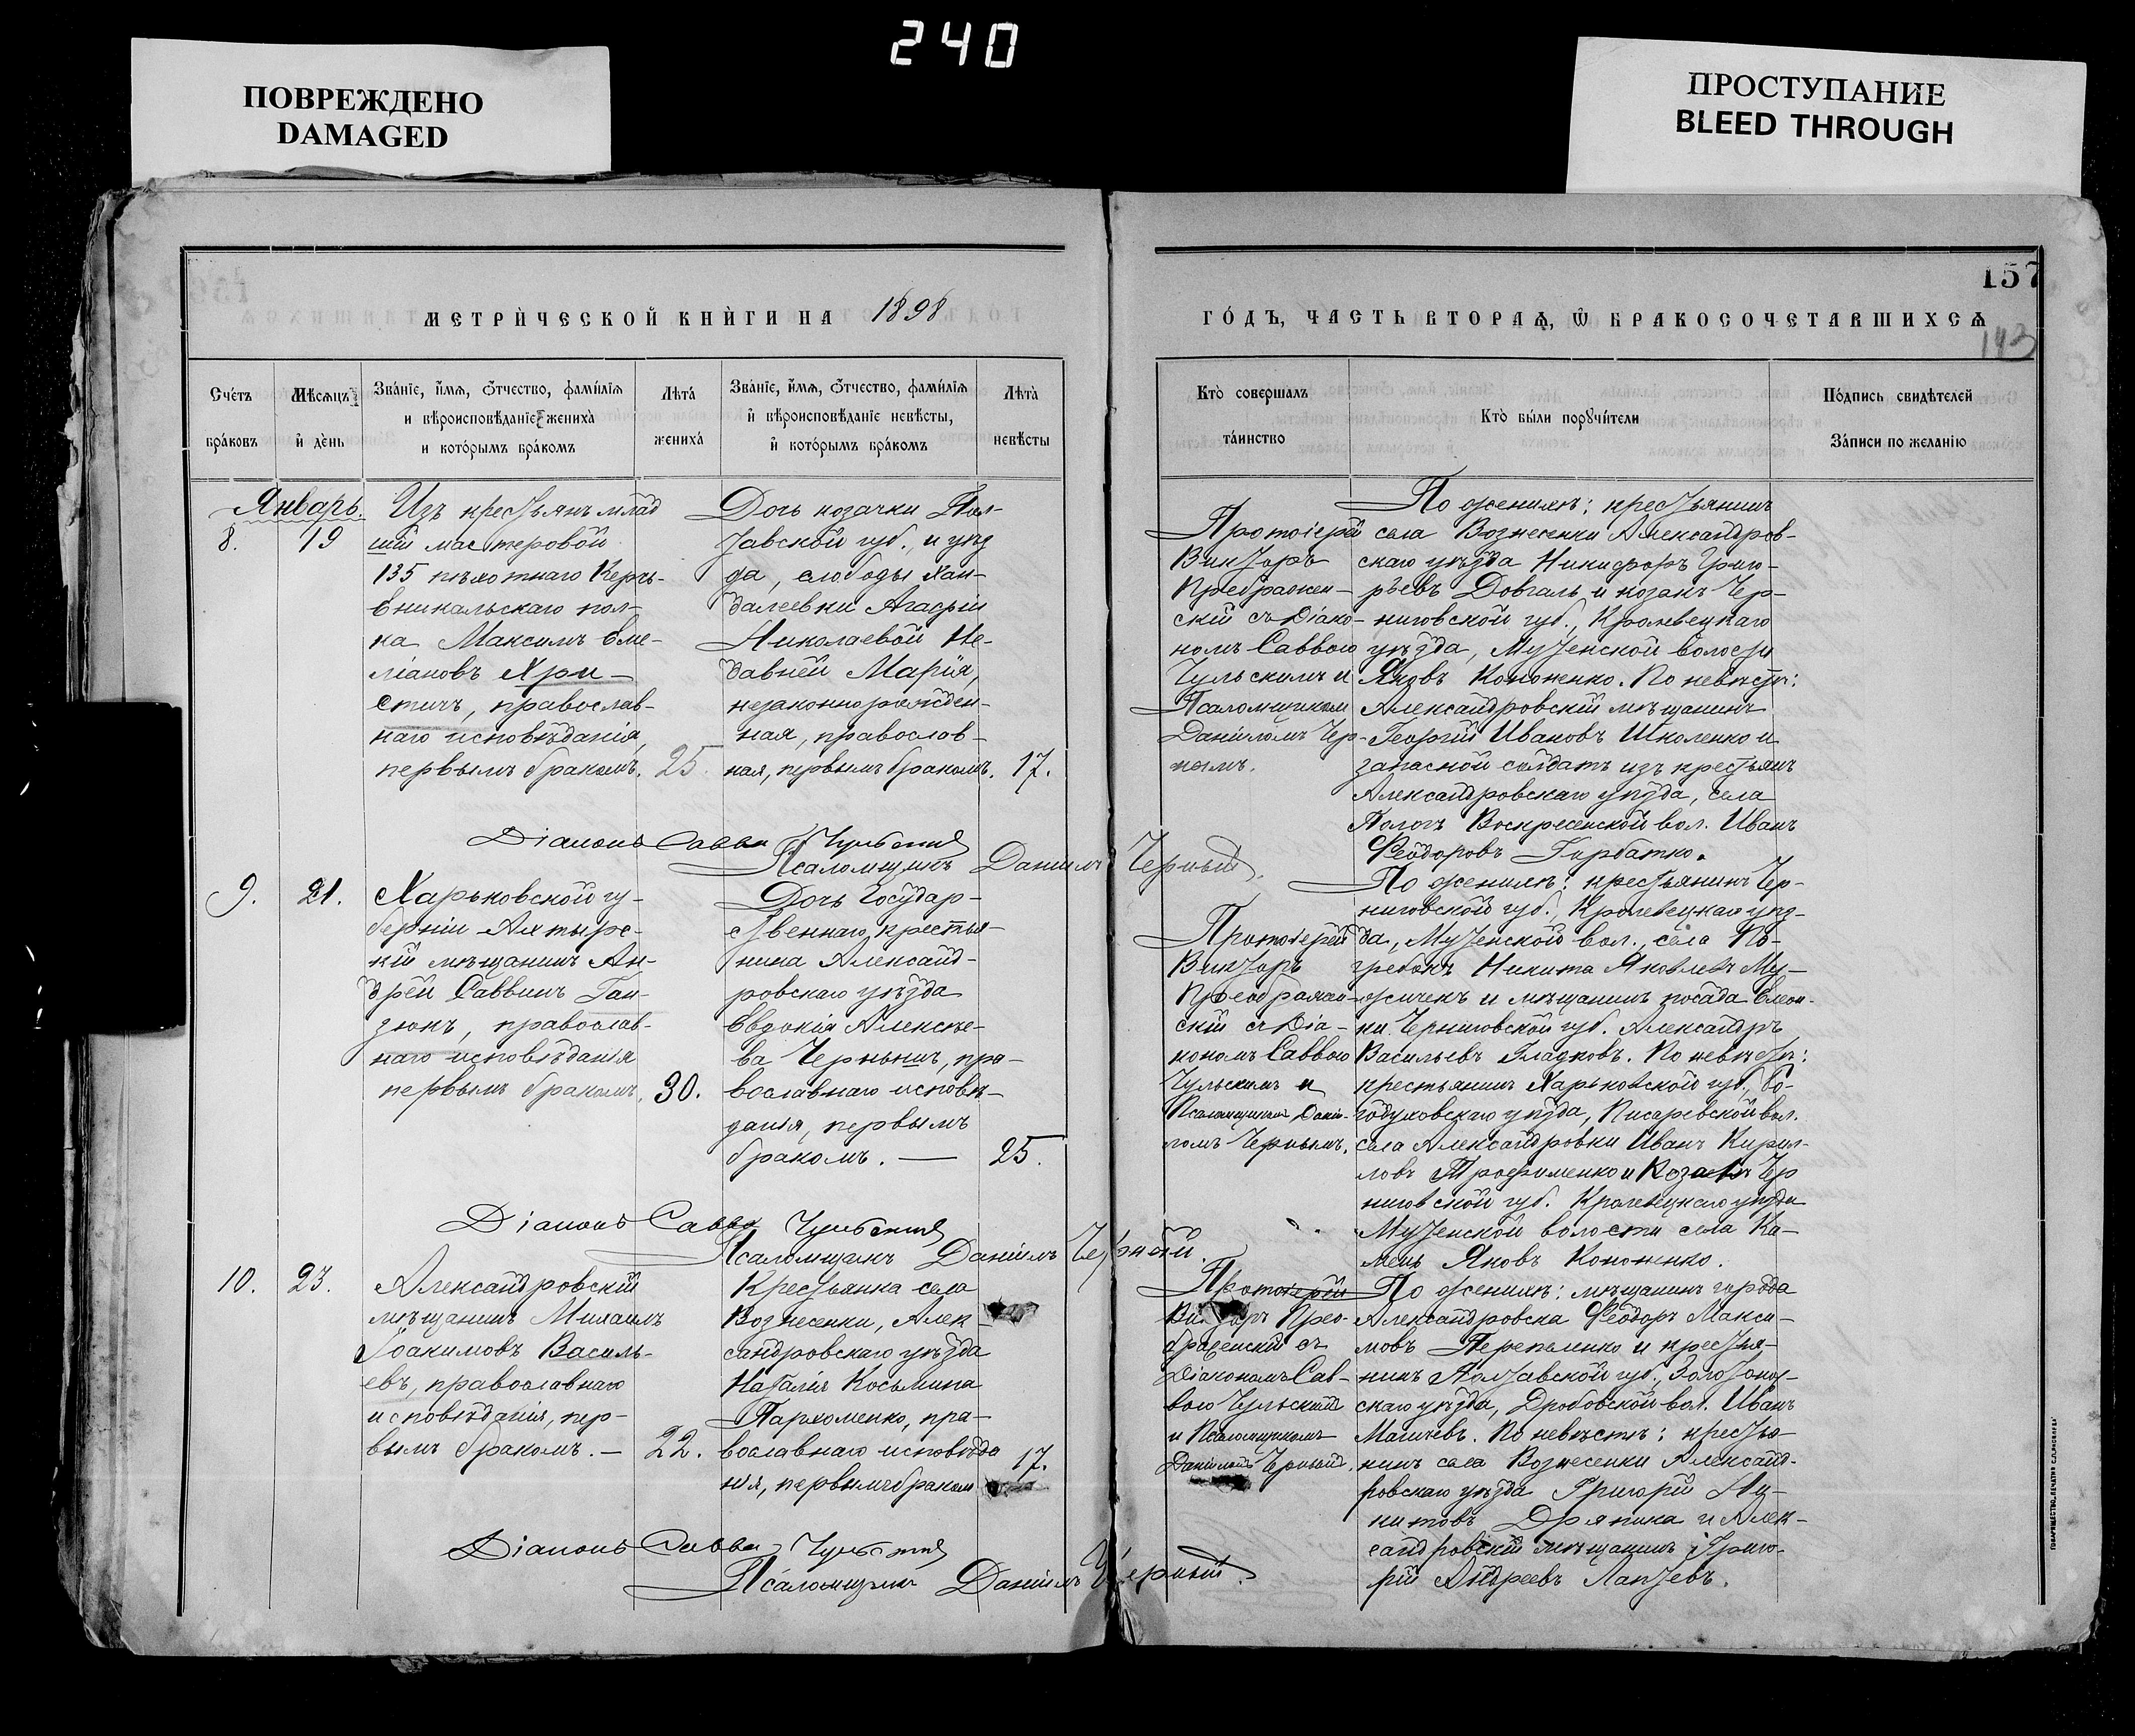 240
ПОВРЕЖДЕНО
DAMAGED
ПРОСТУПАНИЕ
BLEED THROUGH
МЕТРИЧЕСКОЙ КНИГИ НА 1898
Счетъ
браковъ
Мѣсяцъ
и день
Званіе, имя, отчество, фамилія
и вѣроисповѣданіе жениха
и которымъ бракомъ
Лѣта
жениха
Званіе, имя, отчество, фамилія
и вѣроисповѣданіе невѣсты,
и которымъ бракомъ
Лѣта
невѣсты
Январь.
8.
19
Изъ крестьянъ млад
шій мастеровой
135 пѣхотнаго Керчь-
Еникальскаго пол-
ка Максимъ Еме-
ліановъ Хри-
стичъ, православ-
наго исповѣданія,
первымъ бракомъ.
25.
Дочь козачки Пол-
тавской губ., и уѣз
да, слободы
Агафіи
Николаевой Не-
давней Марія,
незаконнорожден-
ная, православ-
ная, первымъ бракомъ.
17.
Діаконъ Савва Чульскій
Псаломщикъ Даніилъ Черный.
9.
21.
Харьковской гу-
берніи Ахтырс-
кій мѣщанинъ Ан-
дрей Саввинъ Ган-
зюкъ, православ-
наго исповѣданія
первымъ бракомъ,
30.
Дочь Государ-
ственнаго крестья-
нина Александ-
ровскаго уѣзда
Евдокія Алексѣе-
ва Чернышъ, пра-
вославнаго исповѣ-
данія, первымъ
бракомъ. —
25.
Діаконъ Савва Чульскій
Псаломщикъ Даніилъ Черный.
10.
23.
Александровскій
мѣщанинъ Михаилъ
Іоакимовъ Василь-
евъ, православнаго
исповѣданія, пер-
вымъ бракомъ. —
22.
Крестьянка села
Вознесенки, Алек-
сандровскаго уѣзда
Наталія Косьмина
Пархоменко, пра-
вославнаго исповѣда
нія, первымъ бракомъ
17.
Діаконъ Савва Чульскій
Псаломщикъ Даніилъ Черный.
157
ГОДЪ, ЧАСТЬ ВТОРАЯ, Ѡ БРАКОСОЧЕТАВШИХСЯ
143
Кто совершалъ
таинство
Кто были поручители
Подпись свидѣтелей
Записи по желанію
Протоіерей
Викторъ
Преображен-
скій съ Діако-
номъ Саввою
Чульскимъ и
Псаломщикомъ
Даніиломъ Чер-
нымъ.
По женихѣ: крестьянинъ
села Вознесенки Александров-
скаго уѣзда Никифоръ Григо-
рьевъ Довгаль и козакъ Чер-
ниговской губ., Кролевецкаго
уѣзда, Мутенской волости
Яковъ Кононенко. По невѣстѣ:
Александровскій мѣщанинъ
Георгій Ивановъ Школенко и
запасной солдатъ изъ крестьянъ
Александровскаго уѣзда, села
Пологъ Воскресенской вол. Иванъ
Ѳеодоровъ Горбатко.
Протоіерей
Викторъ
Преображен-
скій съ Діа-
кономъ Саввою
Чульскимъ и
Псаломщикомъ Дані-
ломъ Чернымъ.
По женихѣ: крестьянинъ Чер-
ниговской губ., Кролевецкаго уѣз-
да, Мутенской вол., села По-
гребокъ Никита Яковлевъ Му-
жиченъ и мѣщанинъ посада Елеон-
ки Черниговской губ. Александръ
Васильевъ Гладковъ. По невѣстѣ:
крестьянинъ Харьковской губ., Бо-
годуховскаго уѣзда, Писаревской вол.
села Александровки Иванъ Кирил-
ловъ Трофименко и Козакъ Чер
ниговской губ. Кролевецкаго уѣзда
Мутенской волости села Ка-
мень Яковъ Кононенко.
Протоіерей
Викторъ Прео-
браженскій съ
Діакономъ Сав-
вою Чульскимъ
и Псаломщикомъ
Даніиломъ Чернымъ.
По женихѣ: мѣщанинъ города
Александровска Ѳеодоръ Макси-
мовъ Перепенко и крестья-
нинъ Полтавской губ., Золотонош-
скаго уѣзда, Дробовской вол. Иванъ
Магичевъ. По невѣстѣ: крестья-
нинъ села Вознесенки Александ-
ровскаго уѣзда Григорій Ни-
китовъ Дряпика и Алек-
сандровскій мѣщанинъ Григо-
рій Андреевъ Лаптевъ.